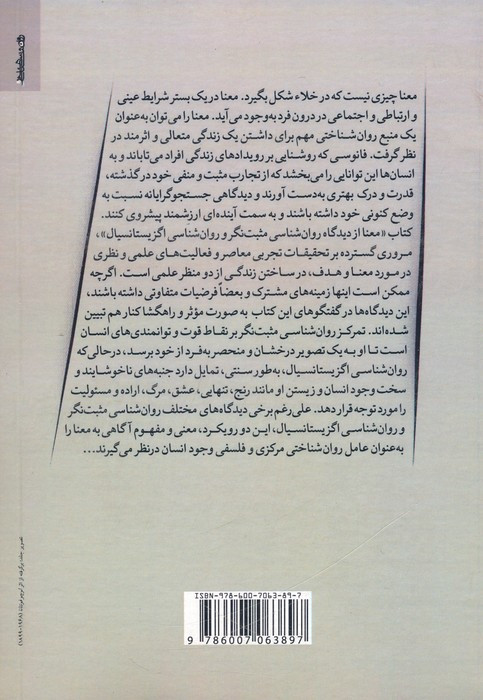 معنا چیزی نیست که در خلاء شکل بگیرد. معنا در یک بستر شرایط عینی
و ارتباطی و اجتماعی در درون فرد به‌وجود می‌آید. معنا را می‌توان به‌عنوان
یک منبع روان‌شناختی مهم برای داشتن یک زندگی متعالی و اثرمند در
نظر گرفت. فانوسی که روشنایی بر رویدادهای زندگی افراد می‌تاباند و به
انسان‌ها این توانایی را می‌بخشد که از تجارب مثبت و منفی خود در گذشته،
قدرت و درک بهتری به‌دست آورند و دیدگاهی جستجوگرایانه نسبت به
وضع کنونی خود داشته باشند و به سمت آینده‌ای ارزشمند پیشروی کنند.
کتاب «معنا از دیدگاه روان‌شناسی مثبت‌نگر و روان‌شناسی اگزیستانسیال»،
مروری گسترده بر تحقیقات تجربی معاصر و فعالیت‌های علمی و نظری
در مورد معنا و هدف، در ساختن زندگی از دو منظر علمی است. اگرچه
ممکن است اینها زمینه‌های مشترک و بعضاً فرضیات متفاوتی داشته باشند،
این دیدگاه‌ها در گفتگوهای این کتاب به صورت مؤثر و راهگشا کنار هم تبیین
شده‌اند. تمرکز روان‌شناسی مثبت‌نگر بر نقاط قوت و توانمندی‌های انسان
است تا او به یک تصویر درخشان و منحصر به‌فرد از خود برسد، درحالی‌که
روان‌شناسی اگزیستانسیال، به‌طور سنتی، تمایل دارد جنبه‌های ناخوشایند و
سخت وجود انسان و زیستن او مانند رنج، تنهایی، عشق، مرگ، اراده و مسئولیت
را مورد توجه قرار دهد. علی‌رغم برخی دیدگاه‌های مختلف روان‌شناسی مثبت‌نگر
و روان‌شناسی اگزیستانسیال، این دو رویکرد، معنی و مفهوم آگاهی به معنا را
به‌عنوان عامل روان‌شناختی مرکزی و فلسفی وجود انسان درنظر می‌گیرند...
ISBN-978-600-7063-89-7
9 786007 063897